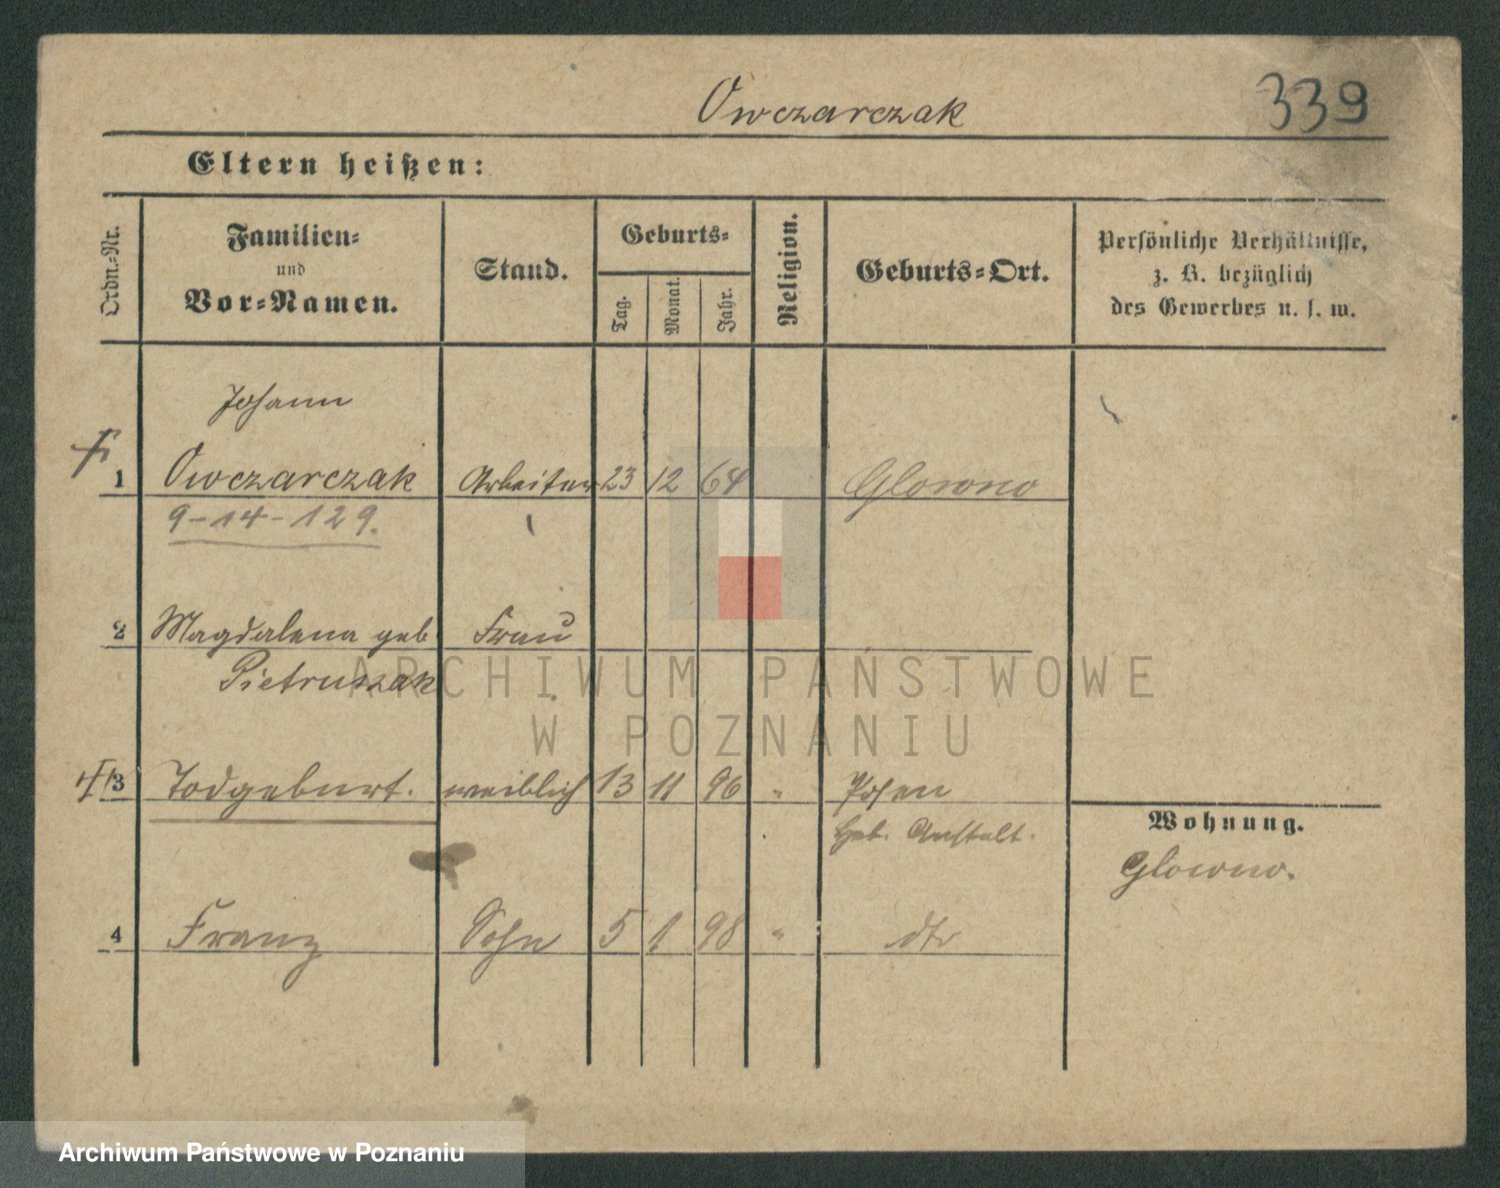 Owczarczak 339
Eltern heißen:
Ordn.-Nr.
Familien-
und
Vor-Namen.
Stand.
Geburts-
Tag.
Monat.
Jahr.
Religion.
Geburts-Ort.
Persönliche Verhältnisse,
z. B. bezüglich
des Gewerbes u. s. w.
Johann
1 Owczarczak Arbeiter 23 12 64 Glowno
9-14-129.
2 Magdalena geb. Frau
Pietruszak
3 Todgeburt. weiblich 13 11 96 " Posen
Geb. Anstalt.
Wohnung.
Glowno.
4 Franz Sohn 5 1 98 " dto
ARCHIWUM PAŃSTWOWE
W POZNANIU
Archiwum Państwowe w Poznaniu